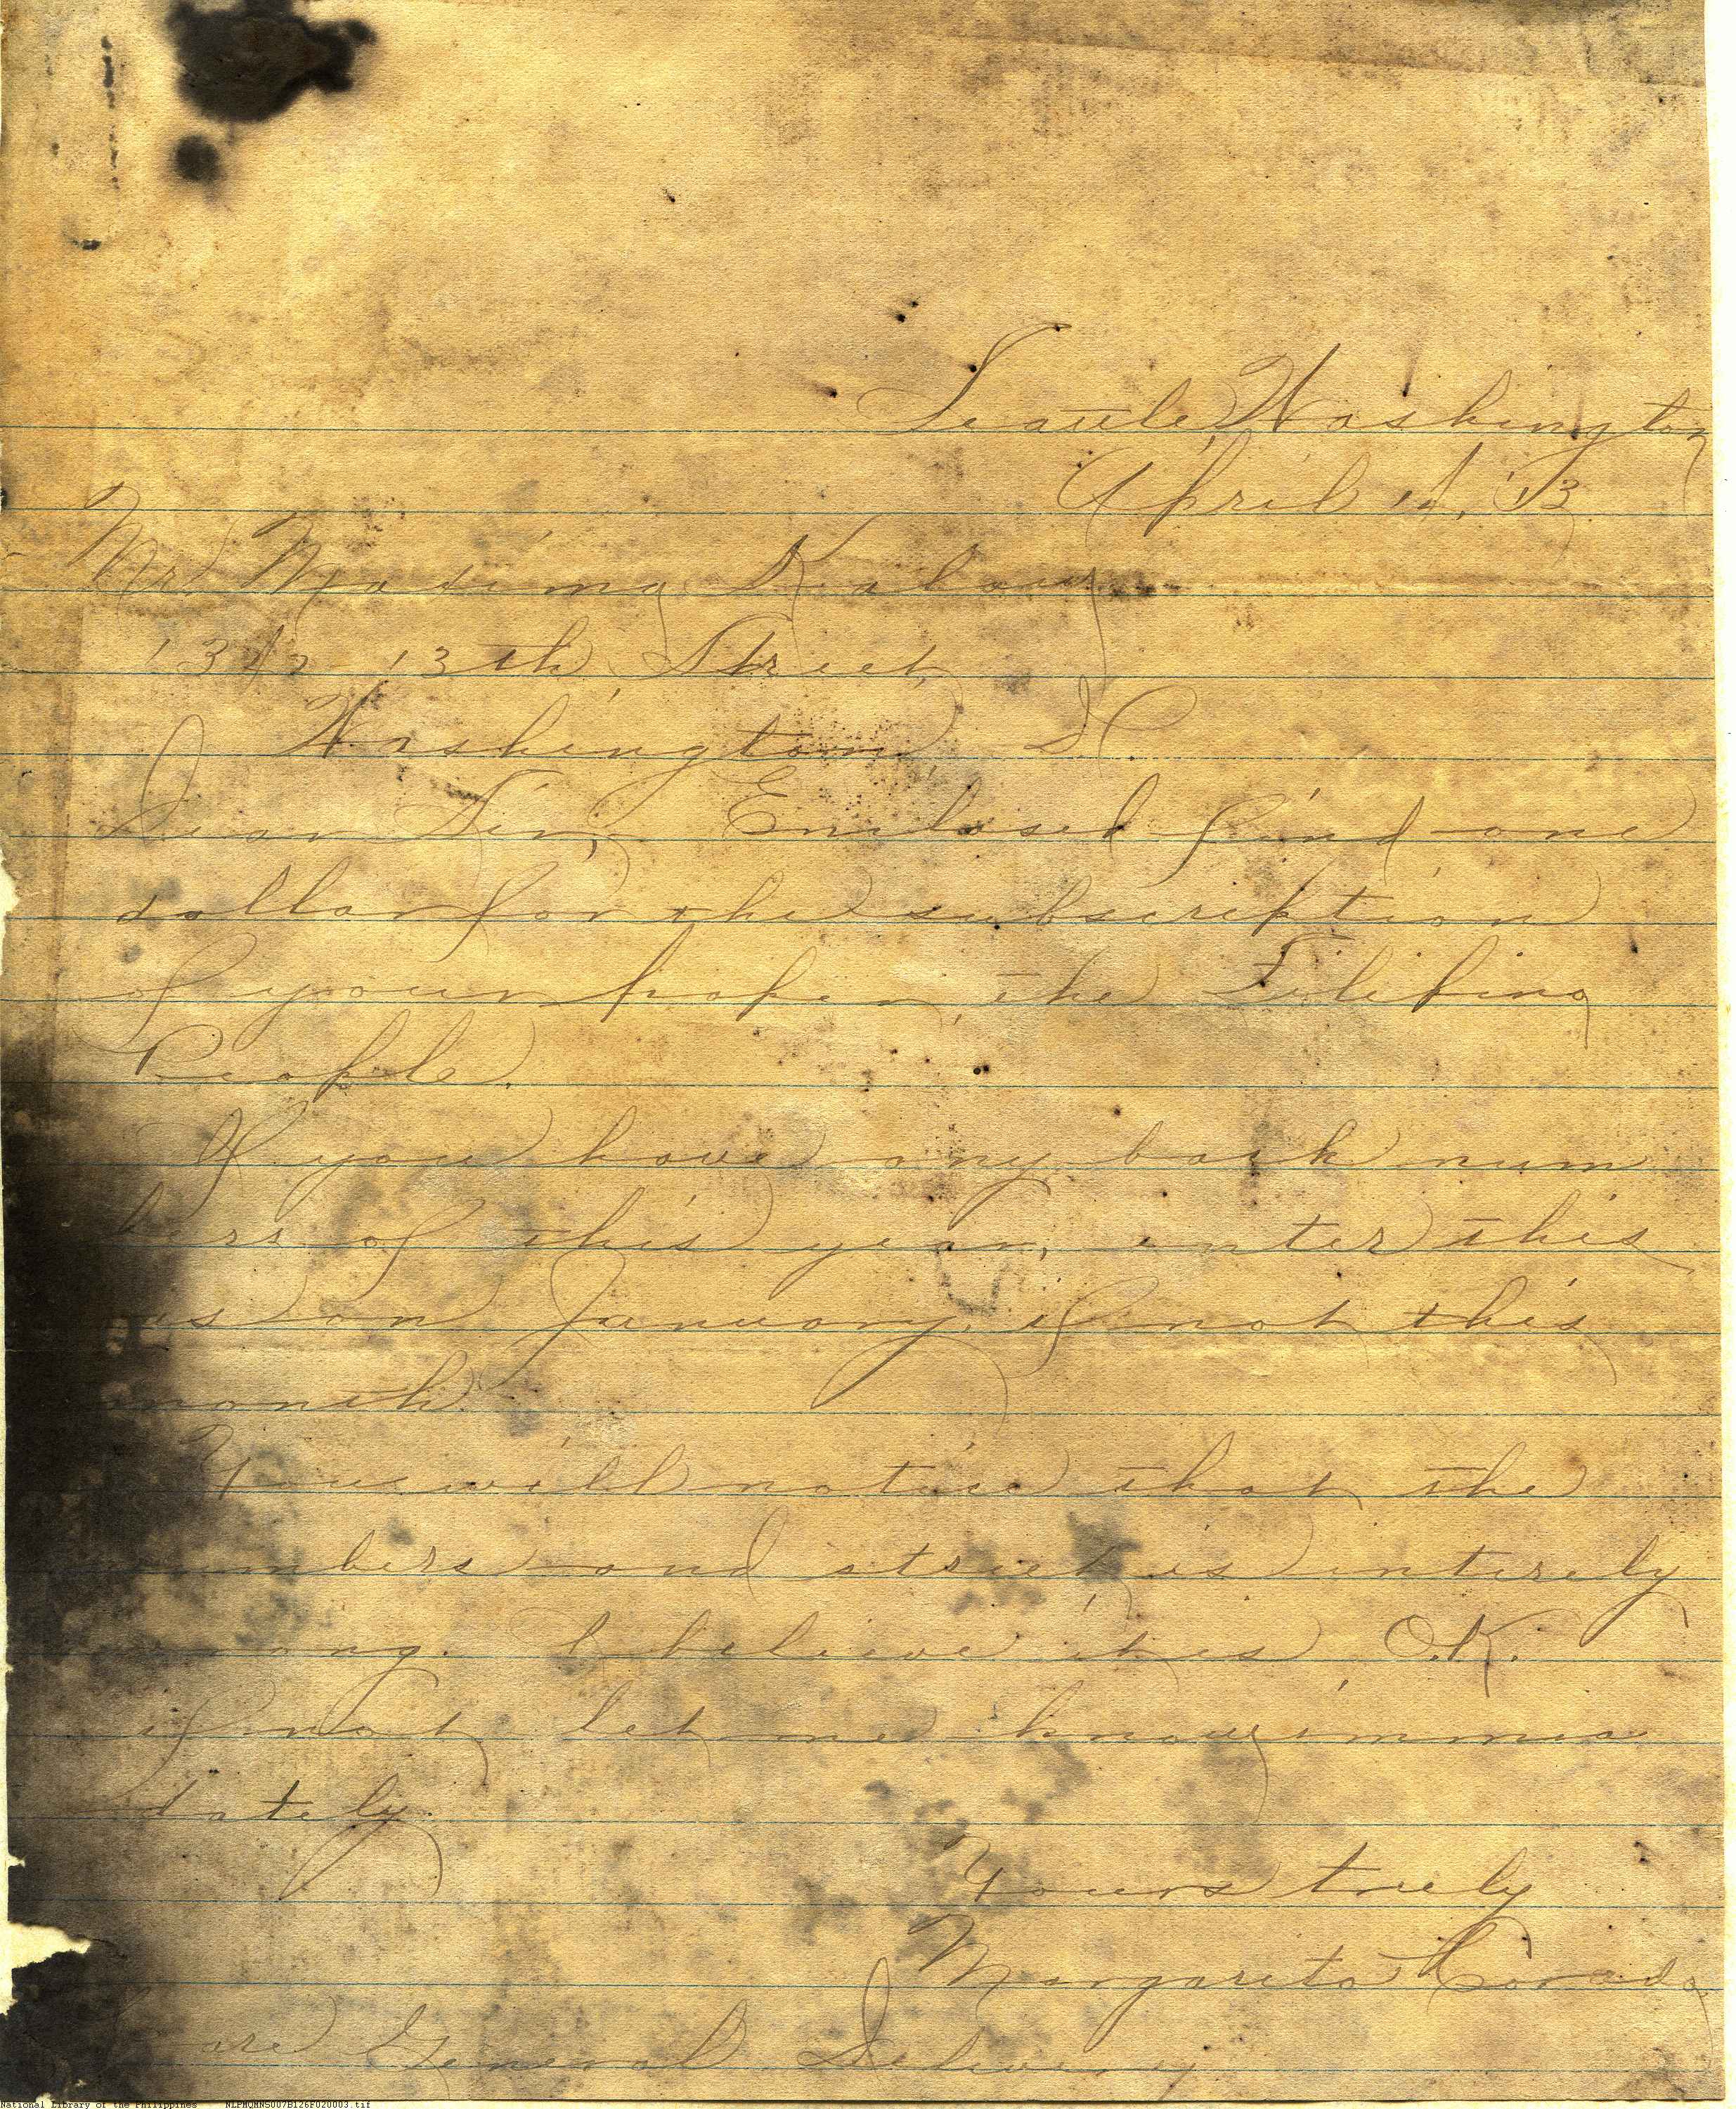 Seattle Washington
April 14, '13
Mr. Maximo Kalaw
13th Street
Washington D C.
Dear Sir, Enclosed find one
dollar for the subscription
of your paper, the Filipino
People.
If you have any back num
bers of this year, enter this
as on January, if not this
month.
You will notice that the
numbers and street is entirely
wrong. I believe it is O.K.
if not let me know imme
diately.
Yours truly
Margarito
Care General Delivery
National Library of the Philippines NLPMQMNS007B126F020003.tif